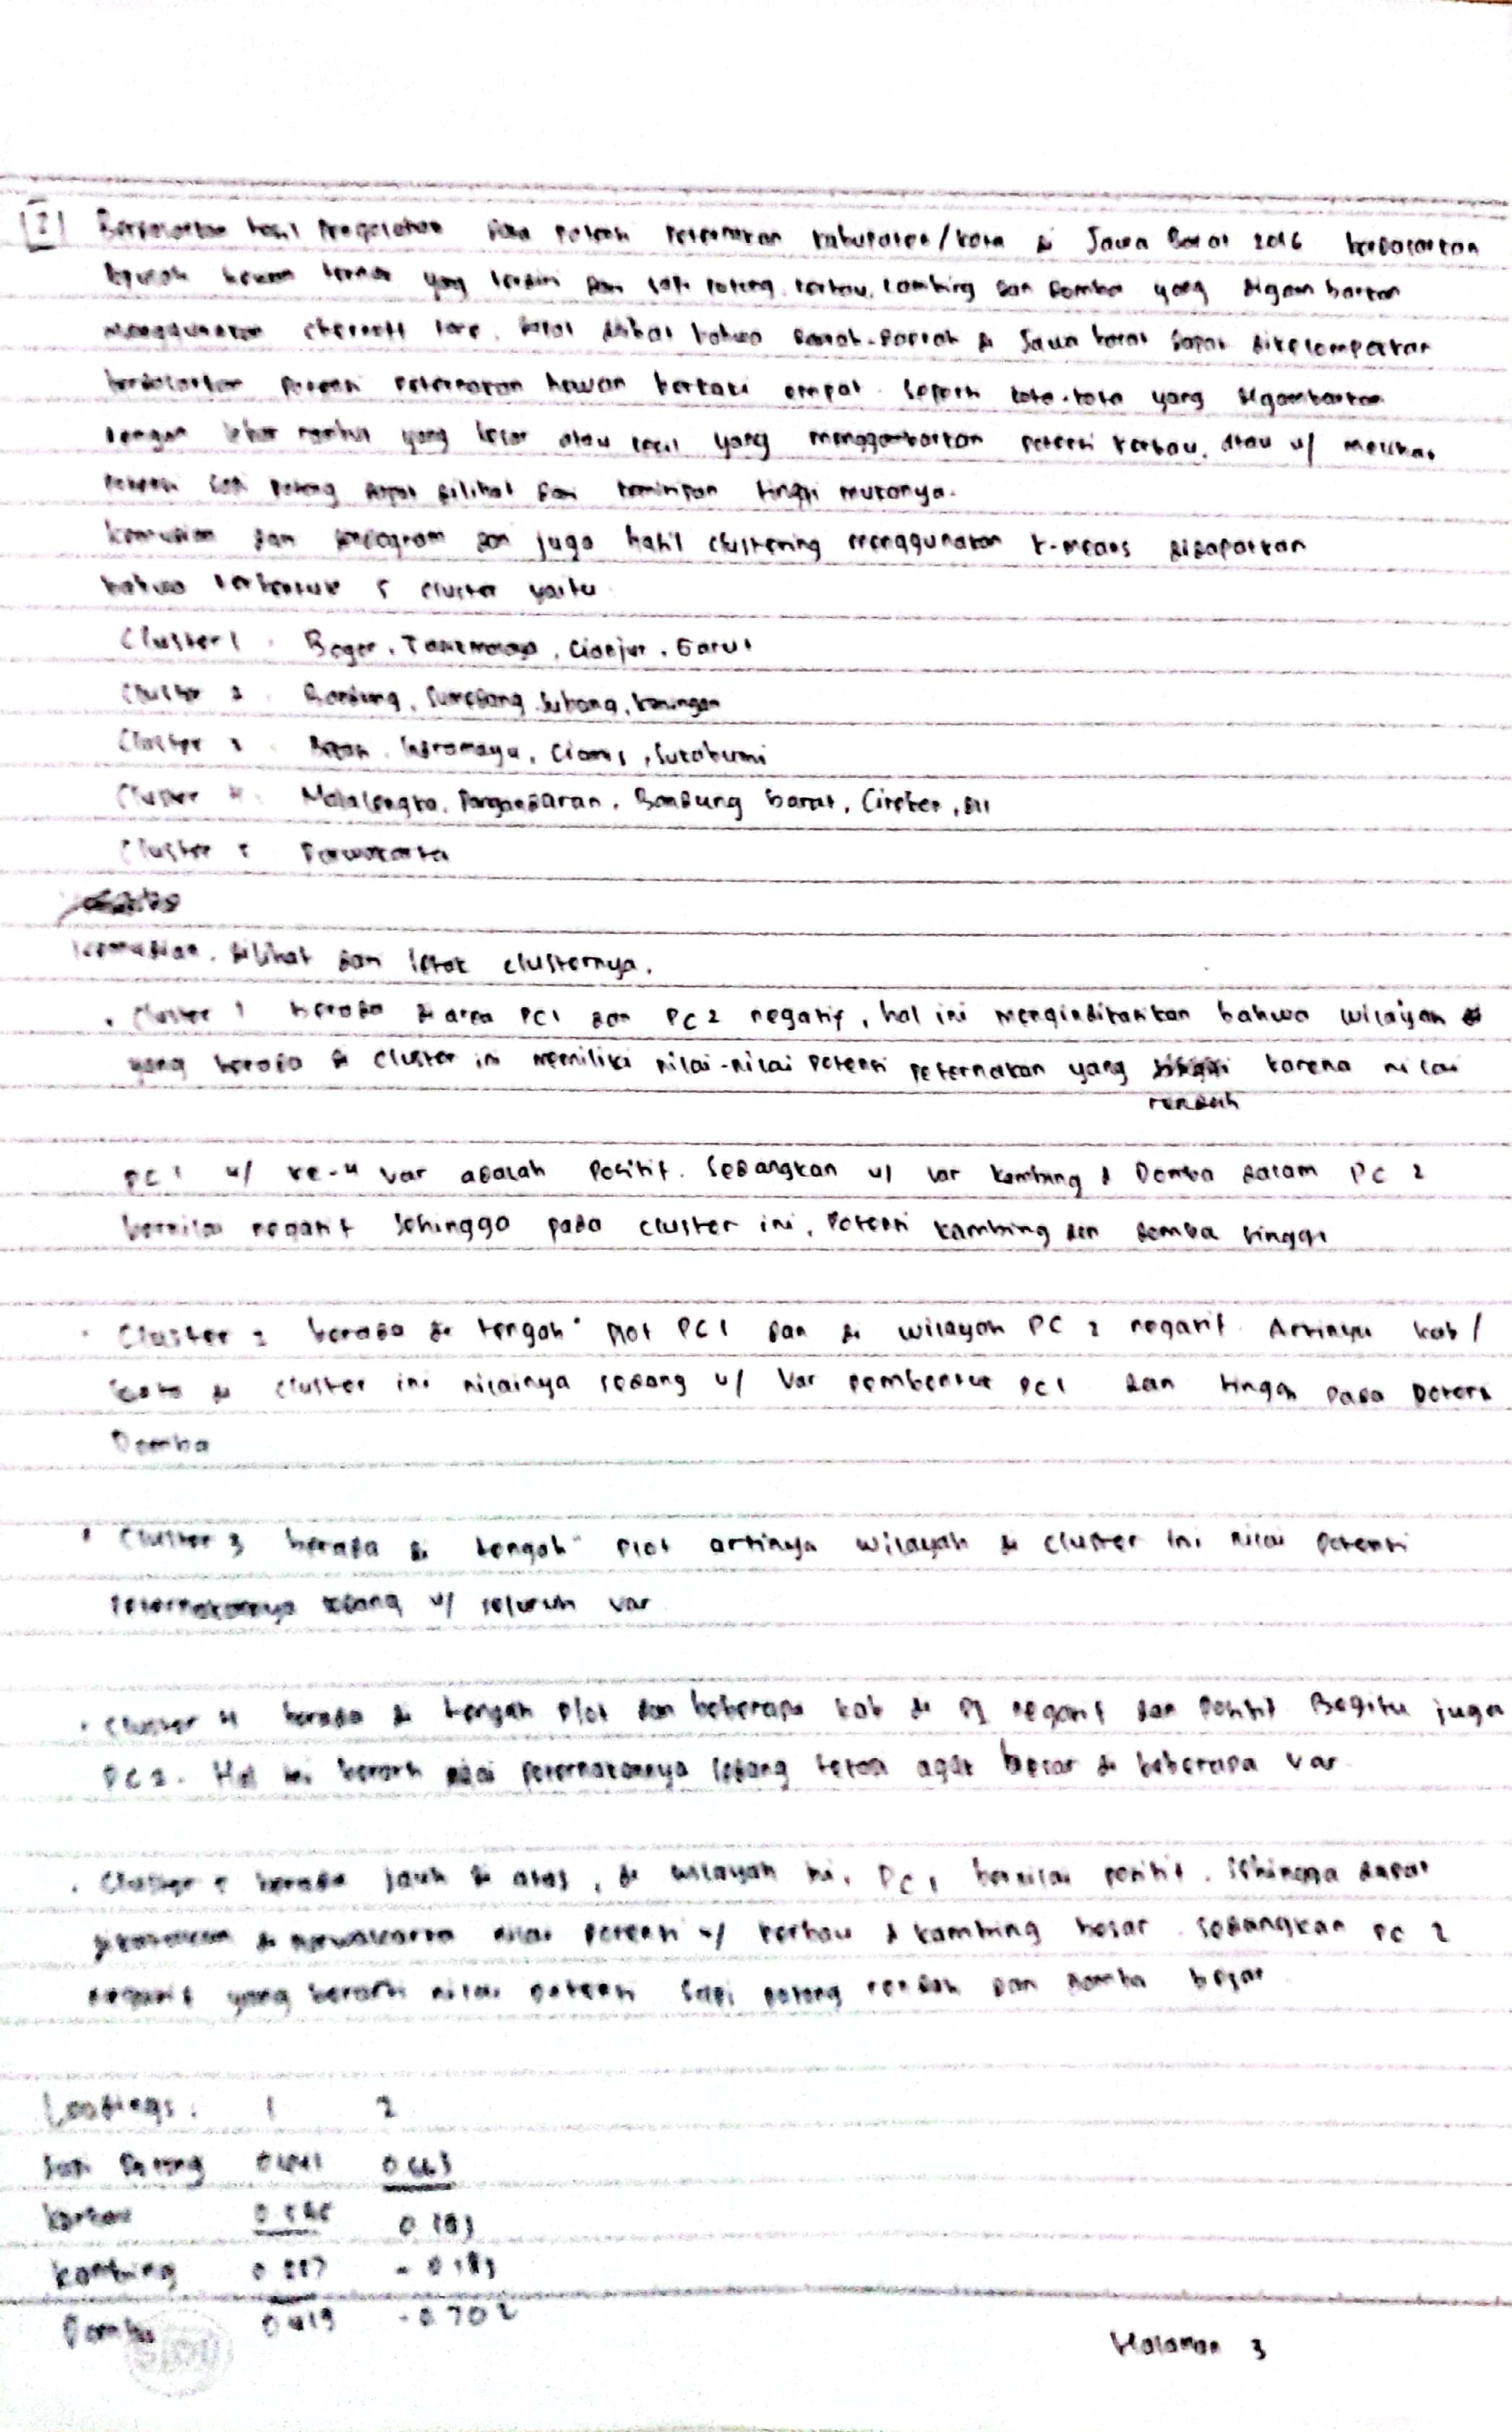 Berdasarkan hasil Pengolahan data potensi Peternakan kabupaten/kota di Jawa Barat 2016 berdasarkan
hewan ternak yang terdiri dari sapi potong, kerbau, kambing dan domba yang digambarkan
menggunakan chernoff face, dapat dilihat bahwa daerah-daerah di Jawa barat dapat dikelompokkan
berdasarkan potensi peternakan hewan berkaki empat. Seperti kota-kota yang digambarkan
dengan lebar rambut yang besar atau kecil yang menggambarkan potensi kerbau. Atau u/ melihat
potensi sapi potong dapat dilihat dari kemiripan tinggi mukanya.
Kemudian dari dendogram dan juga hasil clustering menggunakan k-means didapatkan
bahwa terbentuk 5 cluster yaitu
Cluster 1 : Bogor, Tasikmalaya, Cianjur, Garut
Cluster 2 : Bandung, Sumedang, Subang, Kuningan
Cluster 3 : Indramayu, Ciamis, Sukabumi
Cluster 4 : Majalengka, Pangandaran, Bandung barat, Cirebon, dll
Cluster 5 Purwakarta
Kemudian, dilihat dari letak clusternya.
• Cluster 1 berada di area PC1 dan PC2 negatif, hal ini mengindikasikan bahwa wilayah
yang berada di cluster ini memiliki nilai-nilai potensi peternakan yang karena nilai
rendah
PC1 u/ ke-4 var adalah positif. Sedangkan u/ var kambing & Domba dalam PC 2
bernilai negatif sehingga pada cluster ini, potensi kambing dan domba tinggi
• Cluster 2 berada di tengah" plot PC1 dan di wilayah PC 2 negatif. Artinya kab/
kota di cluster ini nilainya sedang u/ var pembentuk PC1 dan tinggi pada potensi
Domba
• Cluster 3 berada di tengah" plot artinya wilayah di cluster ini nilai potensi
peternakannya sedang u/ seluruh var
• Cluster 4 berada di tengah plot dan beberapa kab di negatif dan positif. Begitu juga
PC2. Hal ini berarti nilai peternakannya sedang tetapi agak besar di beberapa var
• Cluster 5 berada jauh di atas, di wilayah ini, PC1 bernilai positif. Sehingga dapat
dikatakan di purwakarta nilai potensi u/ kerbau & kambing besar. Sedangkan PC 2
negatif yang berarti nilai potensi sapi potong rendah dan domba besar
Loadings : 1 2
Sapi Potong
Kerbau
Kambing
Domba 0.419 -0.702
Halaman 3